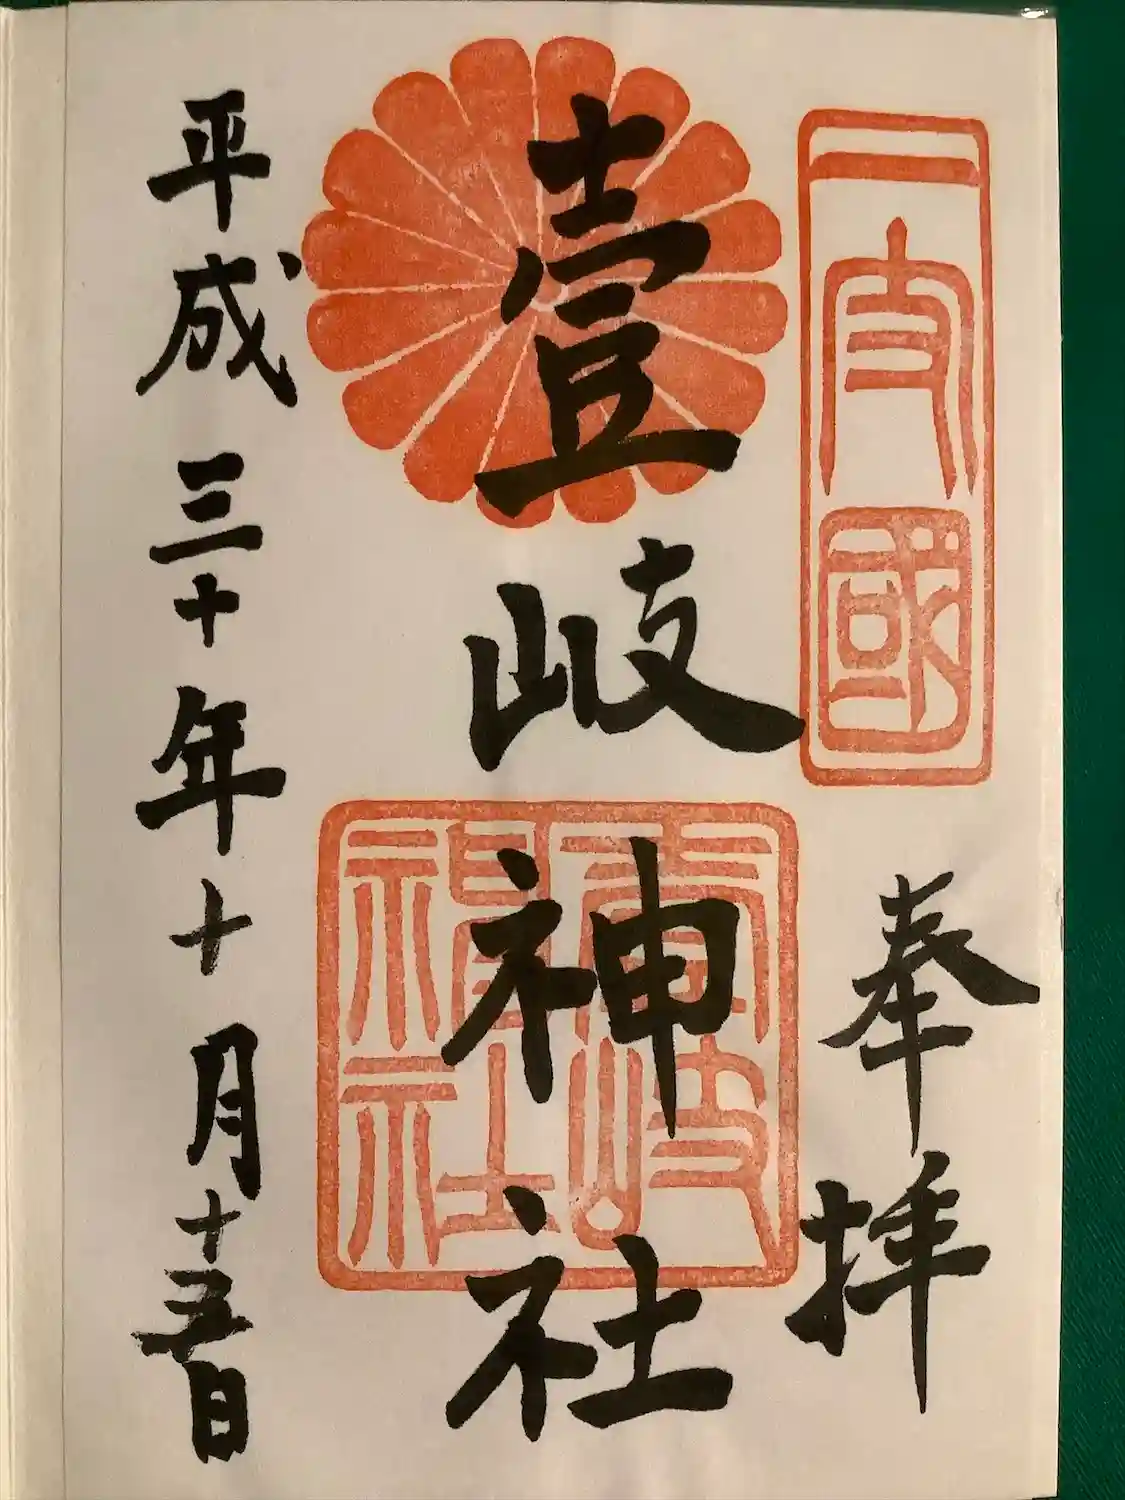 一支國
奉拝
壹岐神社
壹岐神社
平成三十年十月十五日